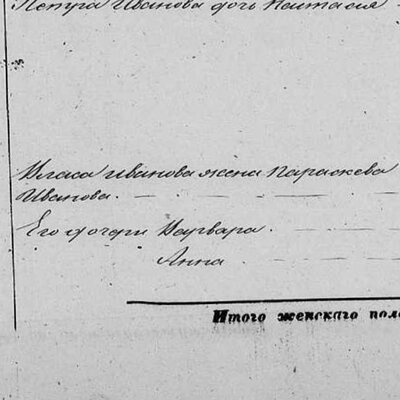 Петра Иванова дочь Настасия
Власа Иванова жена Параскева
Иванова.
Его дочери Варвара.
Анна
Итого женскаго пола